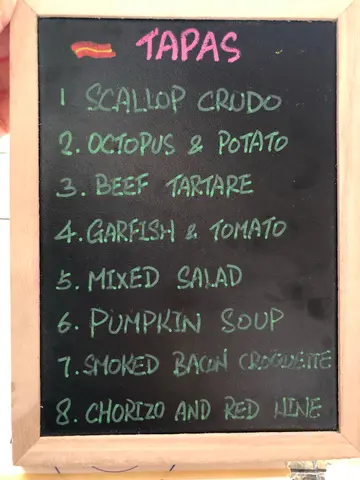 TAPAS
1 SCALLOP CRUDO
2. OCTOPUS & POTATO
3. BEEF TARTARE
4. GARFISH & TOMATO
5. MIXED SALAD
6. PUMPKIN SOUP
7. SMOKED BACON CROQUETTE
8. CHORIZO AND RED WINE